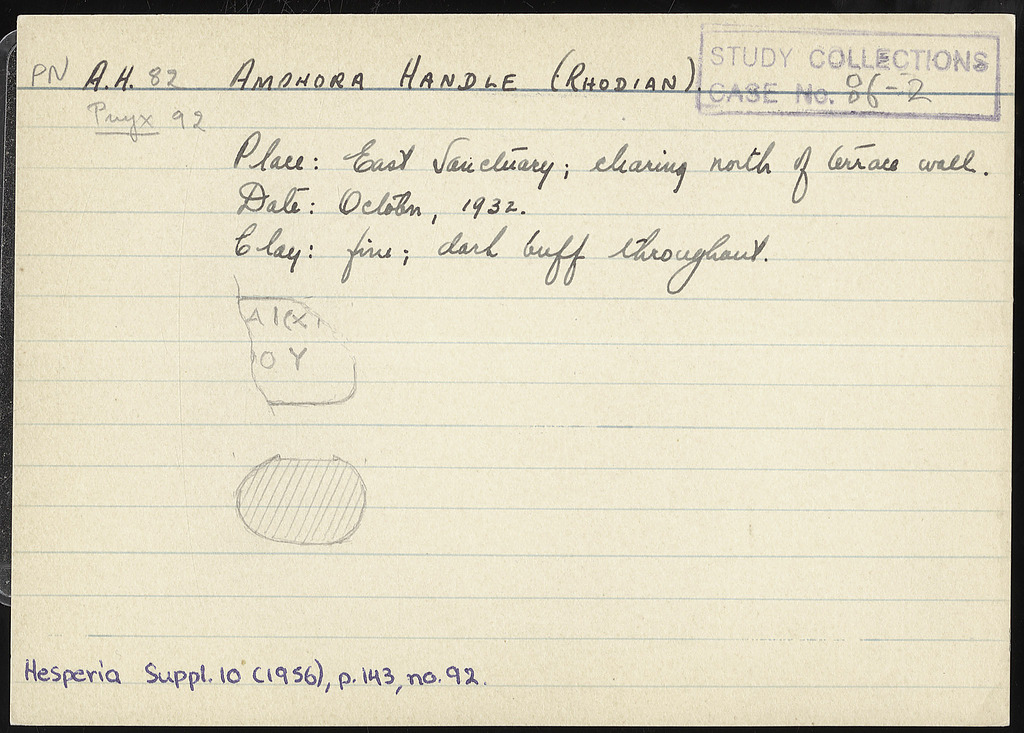 STUDY COLLECTIONS
CASE No. 86-2
PN A.H. 82 AMPHORA HANDLE (RHODIAN).
Pnyx 92
Place: East Sanctuary; clearing north of terrace wall.
Date: October, 1932.
Clay: fine; dark buff throughout.
OY
Hesperia Suppl. 10 (1956), p. 143, no. 92.